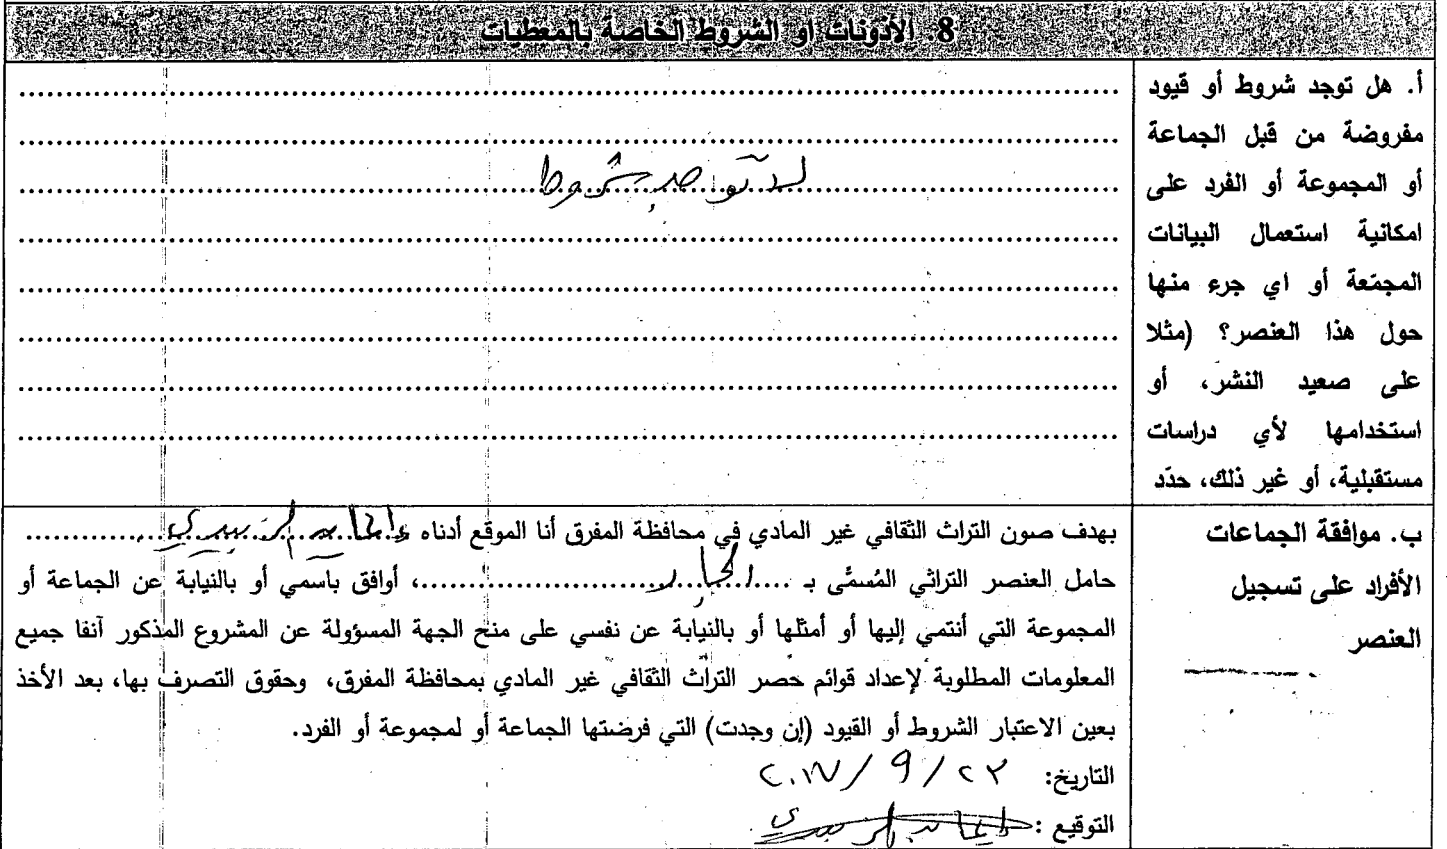 8. الأذونات او الشروط الخاصة بالمعطيات
أ. هل توجد شروط أو قيود
مفروضة من قبل الجماعة
أو المجموعة أو الفرد على
امكانية استعمال البيانات
المجمّعة أو اي جرء منها
حول هذا العنصر؟ (مثلا
على صعيد النشر، أو
استخدامها لأي دراسات
مستقبلية، أو غير ذلك، حدّد
لا توجد شروط
ب. موافقة الجماعات
الأفراد على تسجيل
العنصر
بهدف صون التراث الثقافي غير المادي في محافظة المفرق أنا الموقع أدناه
حامل العنصر التراثي المُسمَّى بـ ............، أوافق باسمي أو بالنيابة عن الجماعة أو
المجموعة التي أنتمي إليها أو أمثلها أو بالنيابة عن نفسي على منح الجهة المسؤولة عن المشروع المذكور آنفا جميع
المعلومات المطلوبة لإعداد قوائم حصر التراث الثقافي غير المادي بمحافظة المفرق، وحقوق التصرف بها، بعد الأخذ
بعين الاعتبار الشروط أو القيود (إن وجدت) التي فرضتها الجماعة أو لمجموعة أو الفرد.
التاريخ:
التوقيع :